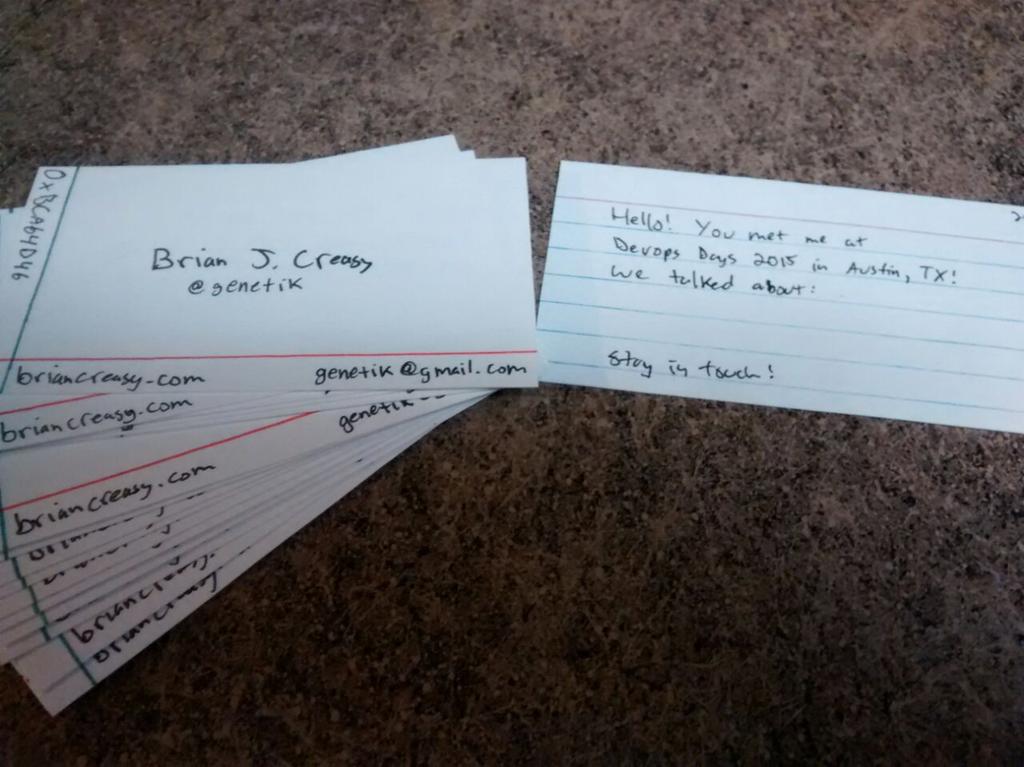 0xBCA64D46
Brian J. Creasy
@genetik
briancreasy.com
genetik@gmail.com
briancreasy.com
genetik
briancreasy.com
briancreasy.
briancreasy
Hello! You met me at
Devops Days 2015 in Austin, TX!
We talked about:
Stay in touch!